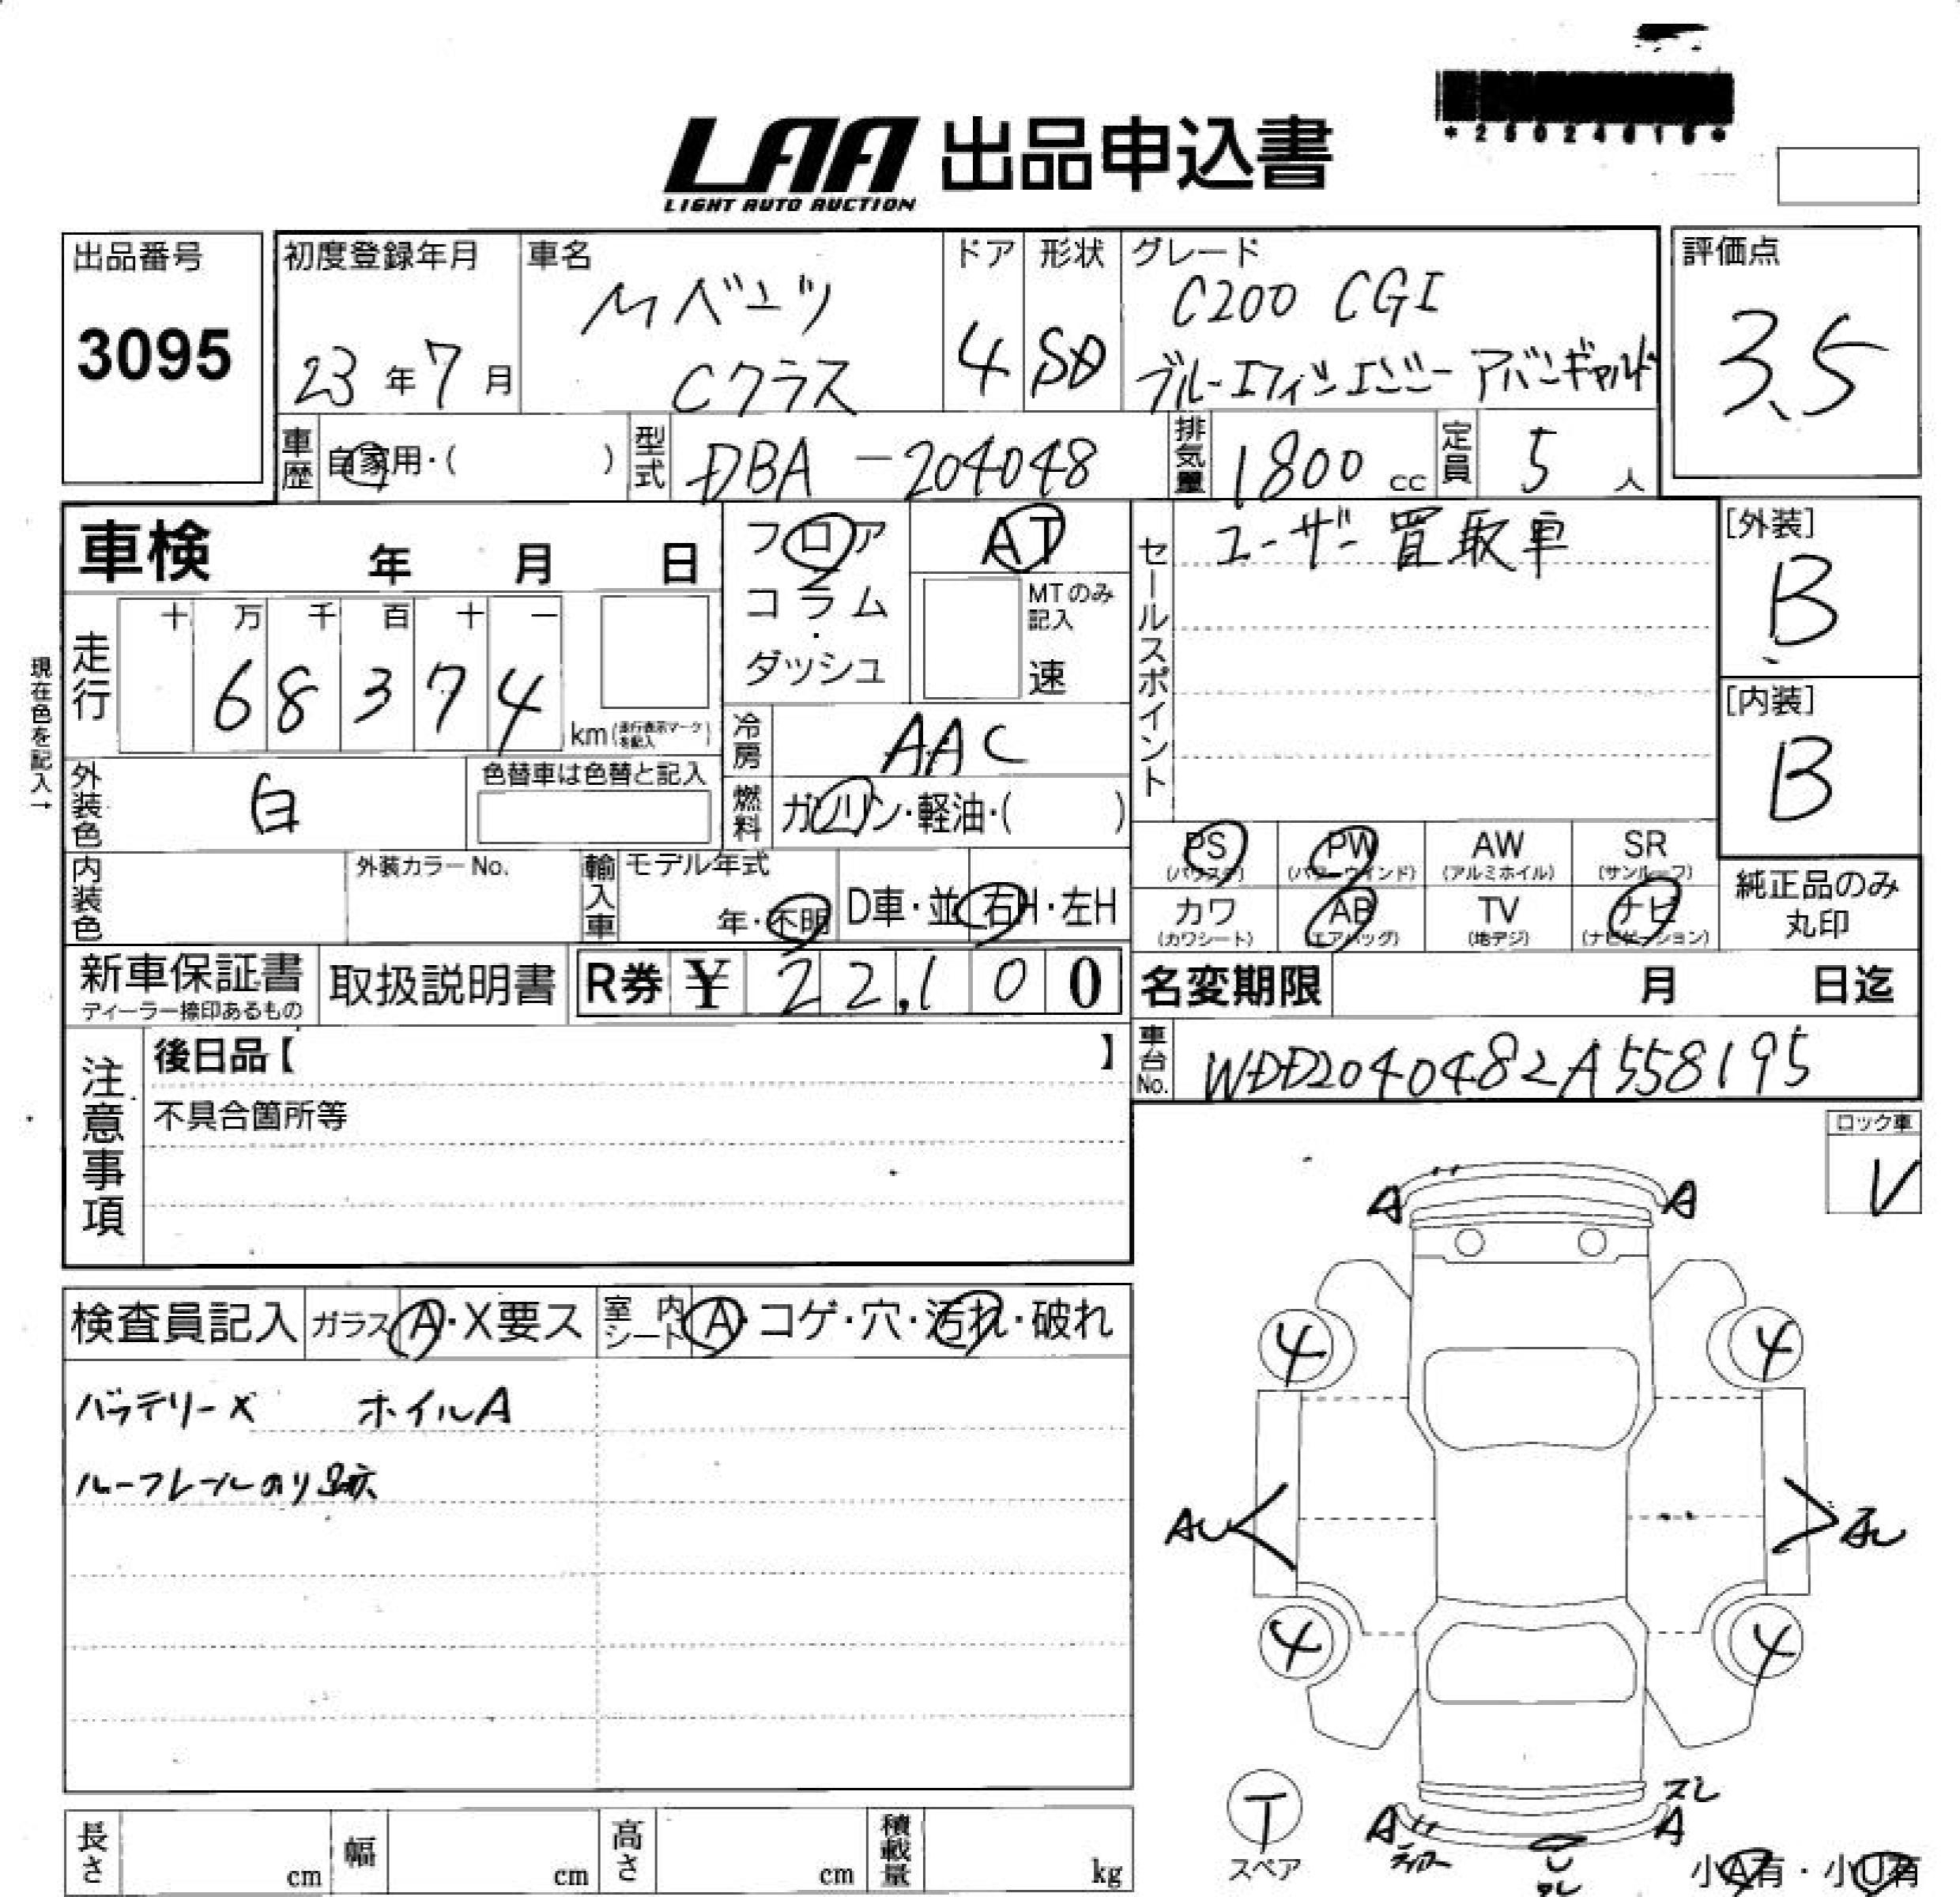 *26024616*
LAA 出品申込書
LIGHT AUTO AUCTION
出品番号
3095
初度登録年月
23年7月
車名
Mベンツ
Cクラス
ドア
4
形状
SD
グレード
C200 CGI
ブルーエフィシエンシー アバンギャルド
評価点
3.5
車歴 自家用・( )
型式 DBA-204048
排気量 1800 cc
定員 5 人
車検 年 月 日
フロア
コラム
・
ダッシュ
AT
MTのみ
記入
速
セールスポイント
ユーザー買取車
[外装]
B
[内装]
B
現在色を記入→
走行
十 万 千 百 十 一
6 8 3 7 4
km(走行表示マークを記入)
冷房 AAC
外装色 白
色替車は色替と記入
燃料 ガソリン・軽油・( )
PS
(パワステ)
PW
(パワーウインド)
AW
(アルミホイル)
SR
(サンルーフ)
カワ
(カワシート)
AB
(エアバッグ)
TV
(地デジ)
ナビ
(ナビゲーション)
純正品のみ
丸印
内装色
外装カラーNo.
輸入車
モデル年式
年・不明
D車・並
右H・左H
新車保証書
ディーラー捺印あるもの
取扱説明書
R券 ¥ 22,100
名変期限 月 日迄
車台No. WDD2040482A558195
注意事項
後日品【 】
不具合箇所等
ロック車
V
A A
検査員記入
ガラス A・X要ス
室内シート A・コゲ・穴・汚れ・破れ
バッテリーX ホイルA
ルーフレールのり跡
4 4
AU
4 4
T
スペア
ズレ
A A
小A有・小U有
長さ cm
幅 cm
高さ cm
積載量 kg